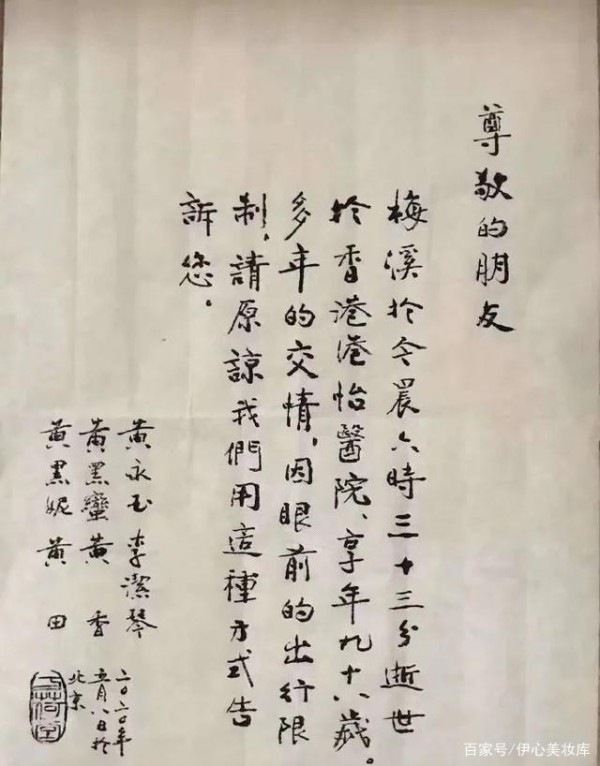 尊敬的朋友
梅溪於今晨六時三十三分逝世
於香港港怡醫院、享年九十八歲。
多年的交情，因眼前的出行限
制，請原諒我們用這種方式告
訴您。
黄永玉 李潔琴
黄黑蠻 黄香
黄黑妮 黄田
二〇二〇年
五月八日於
北京
百家号/伊心美妆库